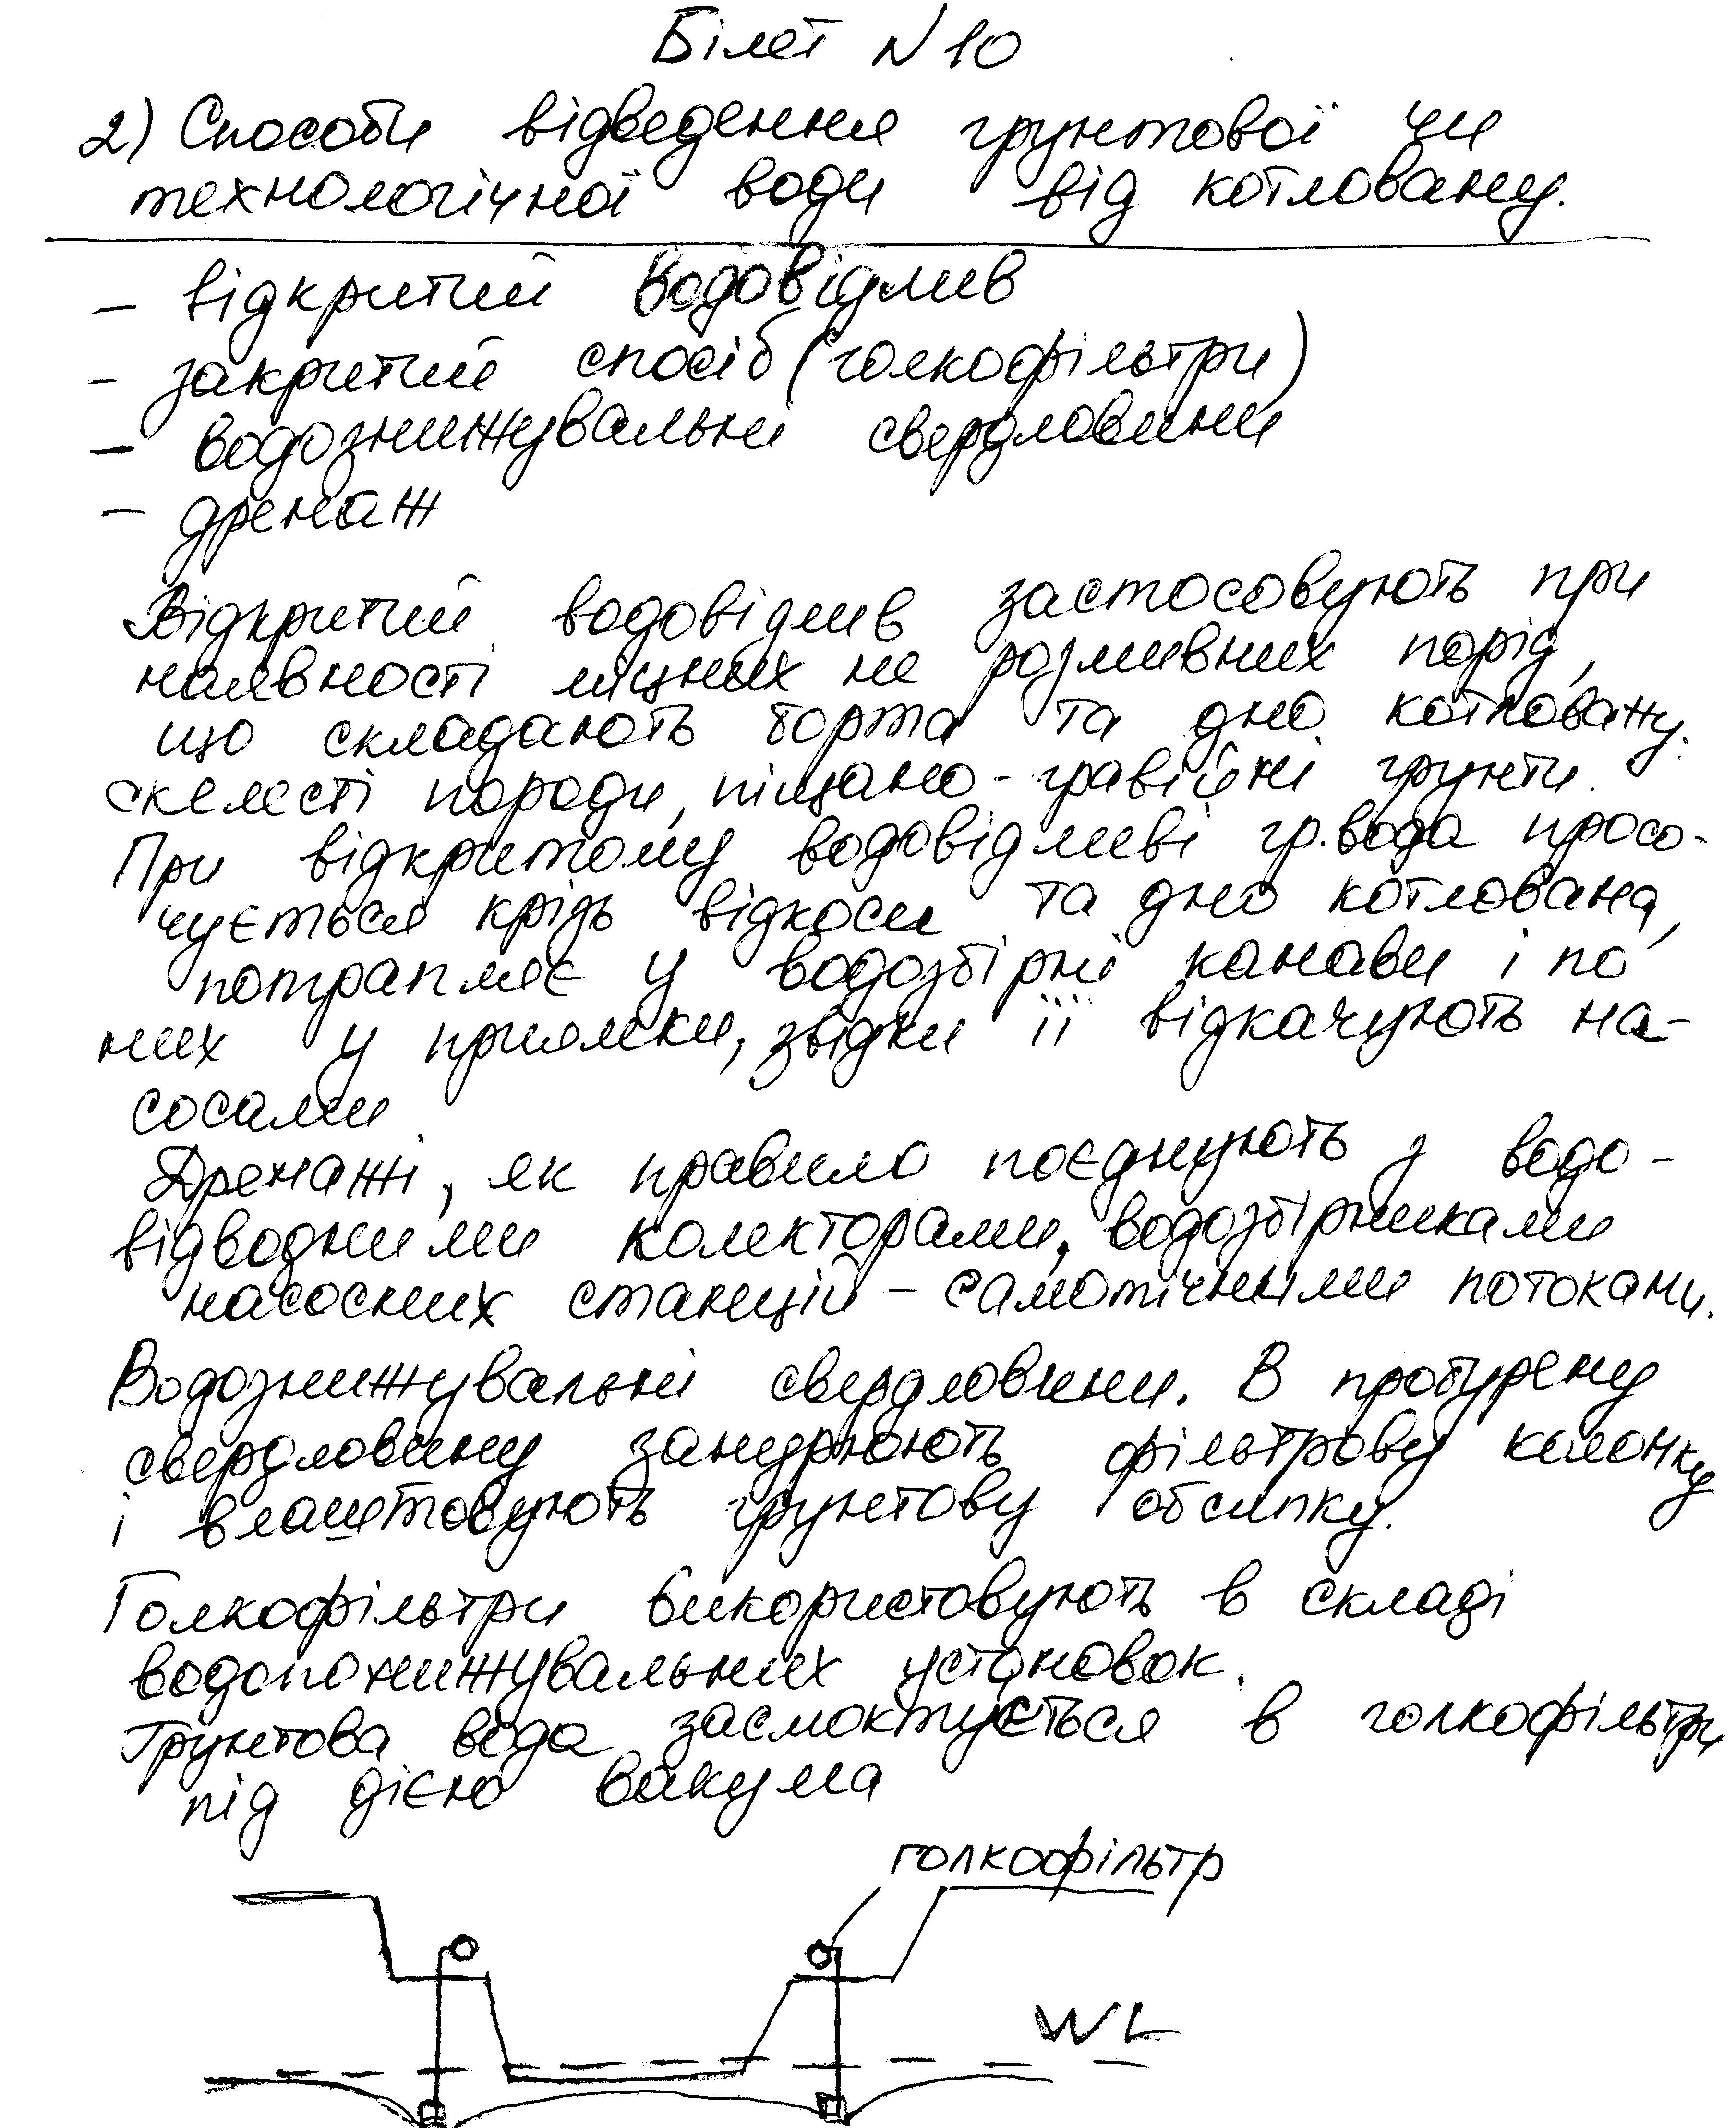 Білет N 10
2) Способи відведення грунтової чи
технологічної води від котловану.
- відкритий водовідлив
- закритий спосіб (голкофільтри)
- водознижувальні свердловини
- дренаж
Відкритий водовідлив застосовують при
наявності міцних не розмивних порід,
що складають борта та дно котловану.
скелесті породи, піщано-гравійні грунти.
При відкритому водовідливі гр.вода просо-
чується крізь відкоси та дно котлована,
потрапляє у водозбірні канави і по
них у приямки, звідки її відкачують на-
сосами.
Дренажі, як правило поєднують з водо-
відводними колекторами, водозбірниками
насосних станцій - самотічними потоками.
Водознижувальні свердловини. В пробурену
свердловину занурюють фільтрову колонку
і влаштовують грунтову обсипку.
Голкофільтри використовують в складі
водопонижувальних установок.
Грунтова вода засмоктується в голкофільтри
під дією вакума
голкофільтр
WL